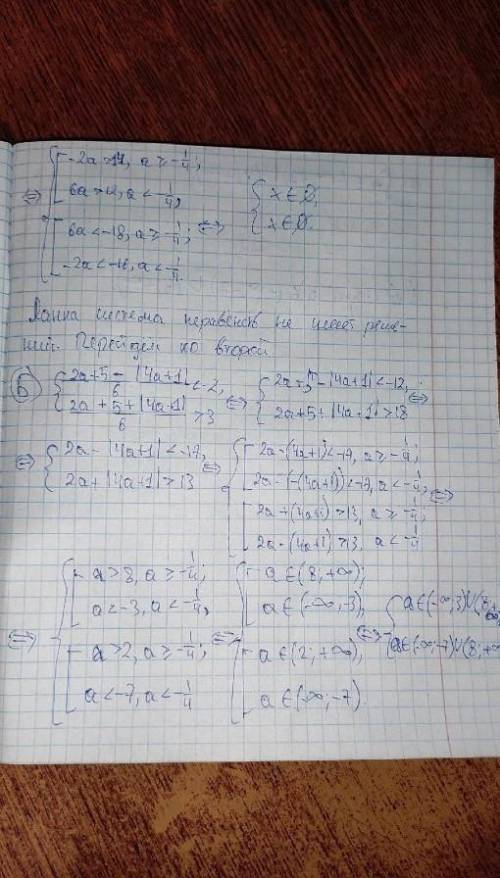 -2a > 17, a ≥ -1/4;
⇔ 6a > 12, a < -1/4, { x ∈ ∅,
6a < -18, a ≥ -1/4; ⇔ x ∈ ∅.
-2a < -18, a < -1/4.
Данна система неравенств не имеет реше-
ний. Перейдем ко второй
Б { (2a+5-|4a+1|)/6 < -2, ⇔ { 2a+5-|4a+1| < -12,
(2a+5+|4a+1|)/6 > 3 2a+5+|4a+1| > 18 ⇔
⇔ { 2a-|4a+1| < -17, ⇔ { [ 2a-(4a+1) < -17, a ≥ -1/4;
2a+|4a+1| > 13 2a-(-(4a+1)) < -17, a < -1/4, ⇔
[ 2a+(4a+1) > 13, a ≥ -1/4;
2a-(4a+1) > 13, a < -1/4
⇔ { [ a > 8, a ≥ -1/4; ⇔ { [ a ∈ (8; +∞);
a < -3, a < -1/4, a ∈ (-∞; -3), ⇔ { a ∈ (-∞; 3) ∪ (8; +∞,
[ a > 2, a ≥ -1/4; [ a ∈ (2; +∞), a ∈ (-∞; -7) ∪ (8; +∞
a < -7, a < -1/4 a ∈ (-∞; -7)